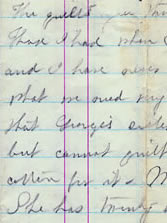 The quilt
I had when
and I have never
what we need my
that Georges
but cannot quilt
cotton for it
She has twenty